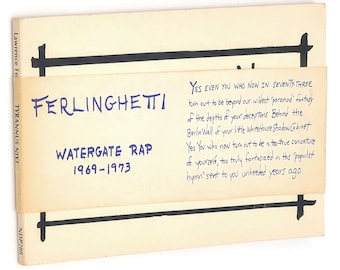 Lawrence Fe
TYRANNUS NIX?
NDP288
FERLINGHETTI
WATERGATE RAP
1969-1973
YES EVEN YOU WHO NOW IN SEVENTY-THREE
turn out to be beyond our wildest 'paranoid' fantasy
of the depths of your deceptions Behind the
Berlin Wall of your little Whitehouse Shadow Cabinet
Yes You who now turn out to be a too-true caricature
of yourself, too truly fantasized in this 'populist
hymn' sent to you unheeded years ago